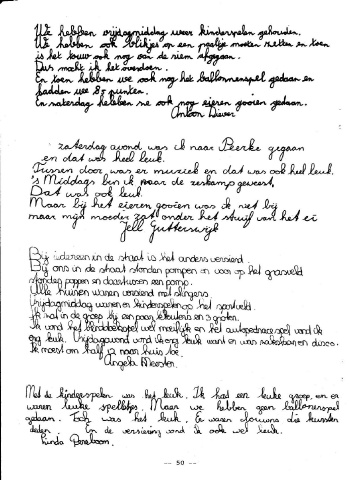 We hebben vrijdagmiddag weer kinderspelen gehouden.
We hebben ook blikjes op een paaltje moeten zetten en toen
is het touw ook nog aan de riem afgegaan.
Dus mocht ik het overdoen.
En toen hebben we ook nog het ballonnenspel gedaan en
hadden we 85 punten.
En zaterdag hebben we ook nog eieren gooien gedaan.
Anton Diever
zaterdag avond was ik naar Peerke gegaan
en dat was heel leuk.
Tussen door was er muziek en dat was ook heel leuk.
's Middags ben ik naar de zeskamp geweest,
Dat was ook leuk
Maar bij het eieren gooien was ik net bij
maar mijn moeder zat onder het struif van het ei
Jell Gutterswijk
Bij iedereen in de straat is het anders versierd.
Bij ons in de straat stonden pompen en voor op het grasveld
stonden poppen en daartussen een pomp.
Alle huizen waren versierd met slingers.
Vrijdagmiddag waren er kinderspelen op het sportveld.
Ik zat in de groep bij een paar kleuters en 5 groten.
Ik vond het bladdenspel wel moeilijk en het autopedracespel vond ik
erg leuk. Vrijdagavond vond ik erg leuk want er was saksboan en disco.
Ik moest om half 12 naar huis toe.
Angela Meester
Met de kinderspelen was het leuk. Ik had een leuke groep, en er
waren leuke spelletjes. Maar we hebben geen ballonnenspel
gedaan. Toch was het leuk. Er waren clowns die kunsten
deden. En de versiering vond ik ook wel leuk.
Linda Boreboom.
-- 50 --